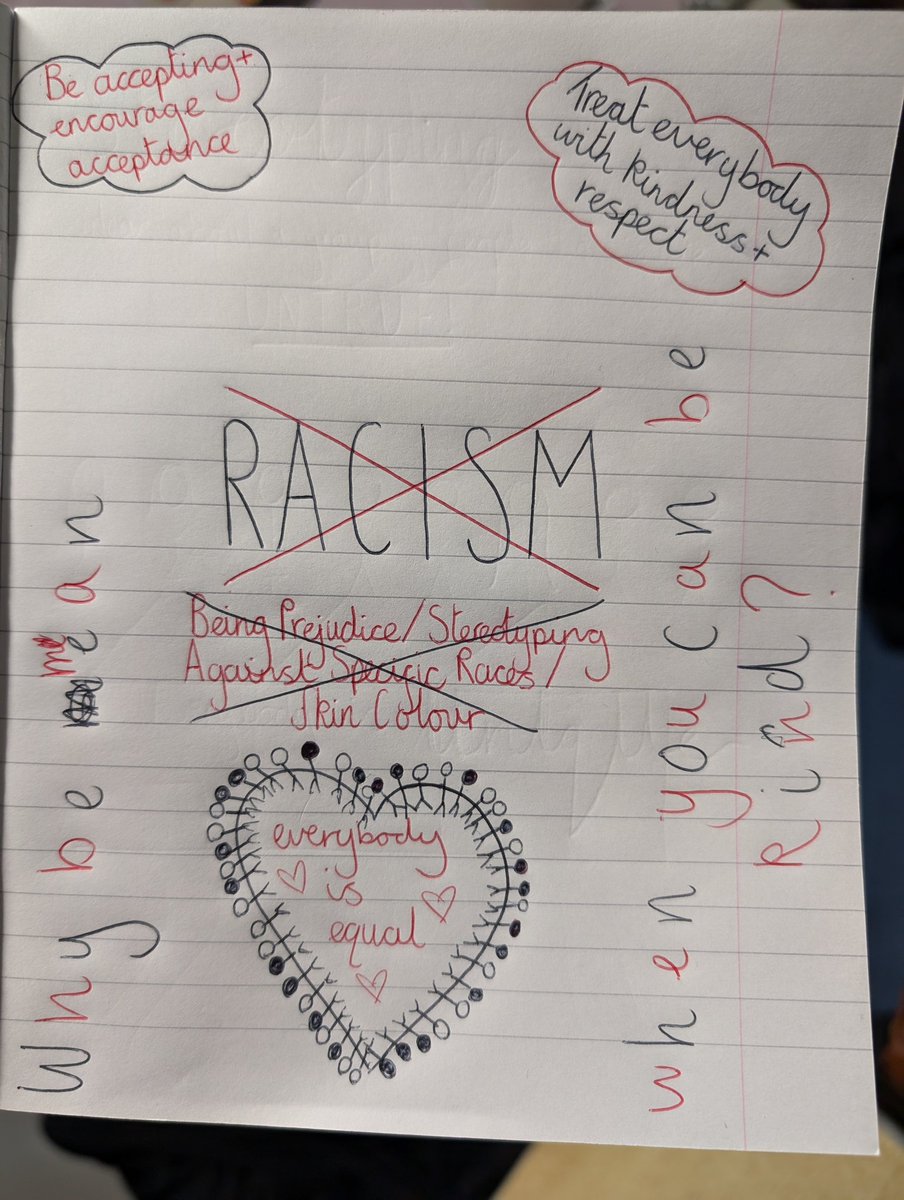 Be accepting +
encourage
acceptance
Treat everybody
with kindness +
respect
RACISM
Being Prejudice / Stereotyping
Against Specific Races /
Skin Colour
everybody
is
equal
Why be mean
when you can be
Kind?